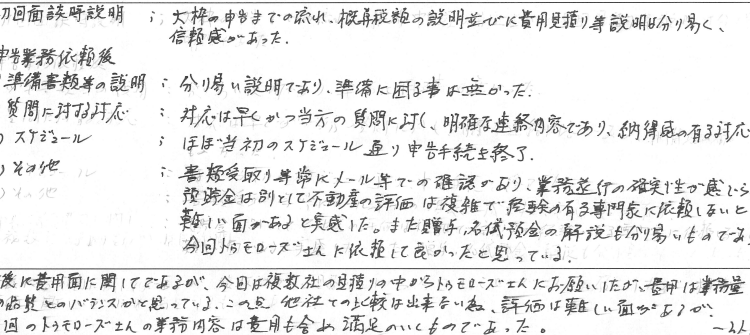 初回面談時説明 ； 大枠の申告までの流れ、概算税額の説明並びに費用見積り等説明は分り易く、
信頼感があった.
申告業務依頼後
準備書類等の説明 ； 分り易い説明であり、準備に困る事は無かった.
質問に対する対応 ； 対応は早くかつ当方の質問に対し、明確な連絡内容であり、納得感の有る対応
) スケジュール ； ほぼ当初のスケジュール通り申告手続を終了.
) その他 ； 書類受取り等常にメール等での確認があり、業務遂行の確実性が感じら
預貯金は別として不動産の評価は複雑で経験の有る専門家に依頼しないと
難しい面があると実感した。また贈与、名義預金の解説も分り易いものであ
今回トゥモローズさんに依頼して良かったと思っている.
後に費用面に関してであるが、今回は複数社の見積りの中からトゥモローズさんにお願いしたが、費用は業務量
の品質とのバランスかと思っている. この点 他社との比較は出来ない為、評価は難しい面があるが、
回のトゥモローズさんの業務内容は費用も含め満足のいくものであった。